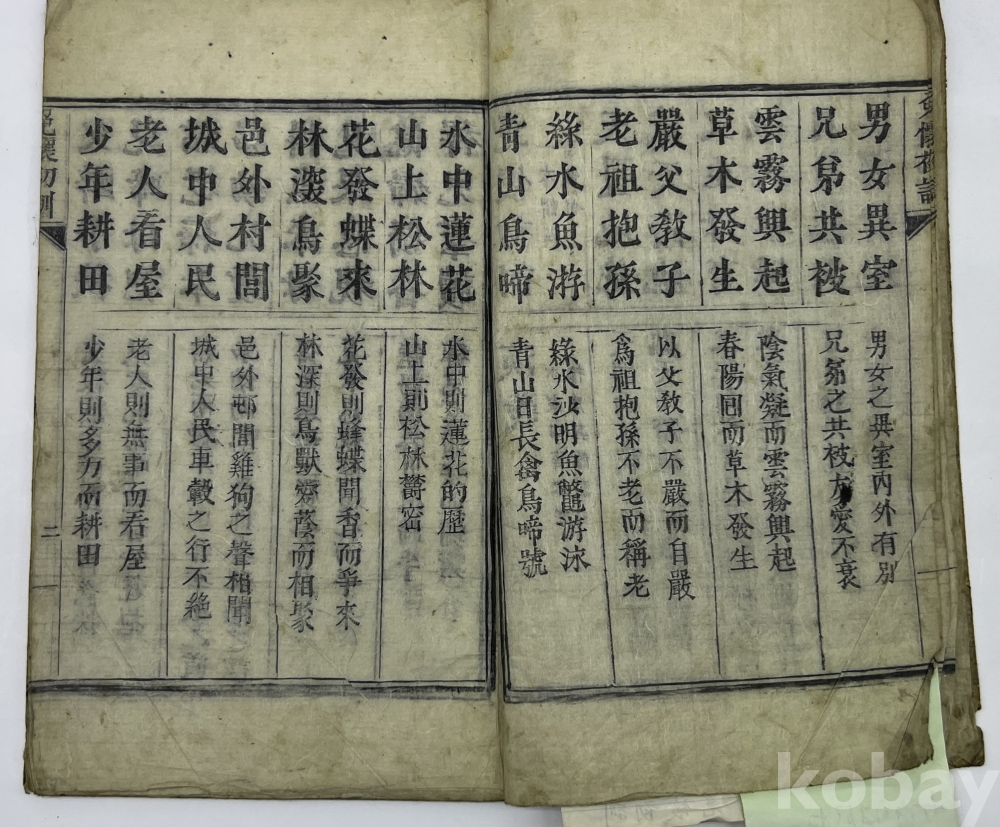 男女異室
兄弟共被
雲霧興起
草木發生
嚴父敎子
老祖抱孫
綠水魚游
靑山鳥啼
男女之異室內外有別
兄弟之共被友愛不衰
陰氣凝而雲霧興起
春陽回而草木發生
以父敎子不嚴而自嚴
爲祖抱孫不老而稱老
綠水沙明魚鼈游泳
靑山日長禽鳥啼號
水中蓮花
山上松林
花發蝶來
林深鳥聚
邑外村閭
城中人民
老人看屋
少年耕田
水中則蓮花的歷
山上則松林鬱密
花發則蜂蝶聞香而爭來
林深則鳥獸齊蔭而相聚
邑外邨閭雞狗之聲相聞
城中人民車轂之行不絶
老人則無事而看屋
少年則多力而耕田
兒懷初訓
二
kobay